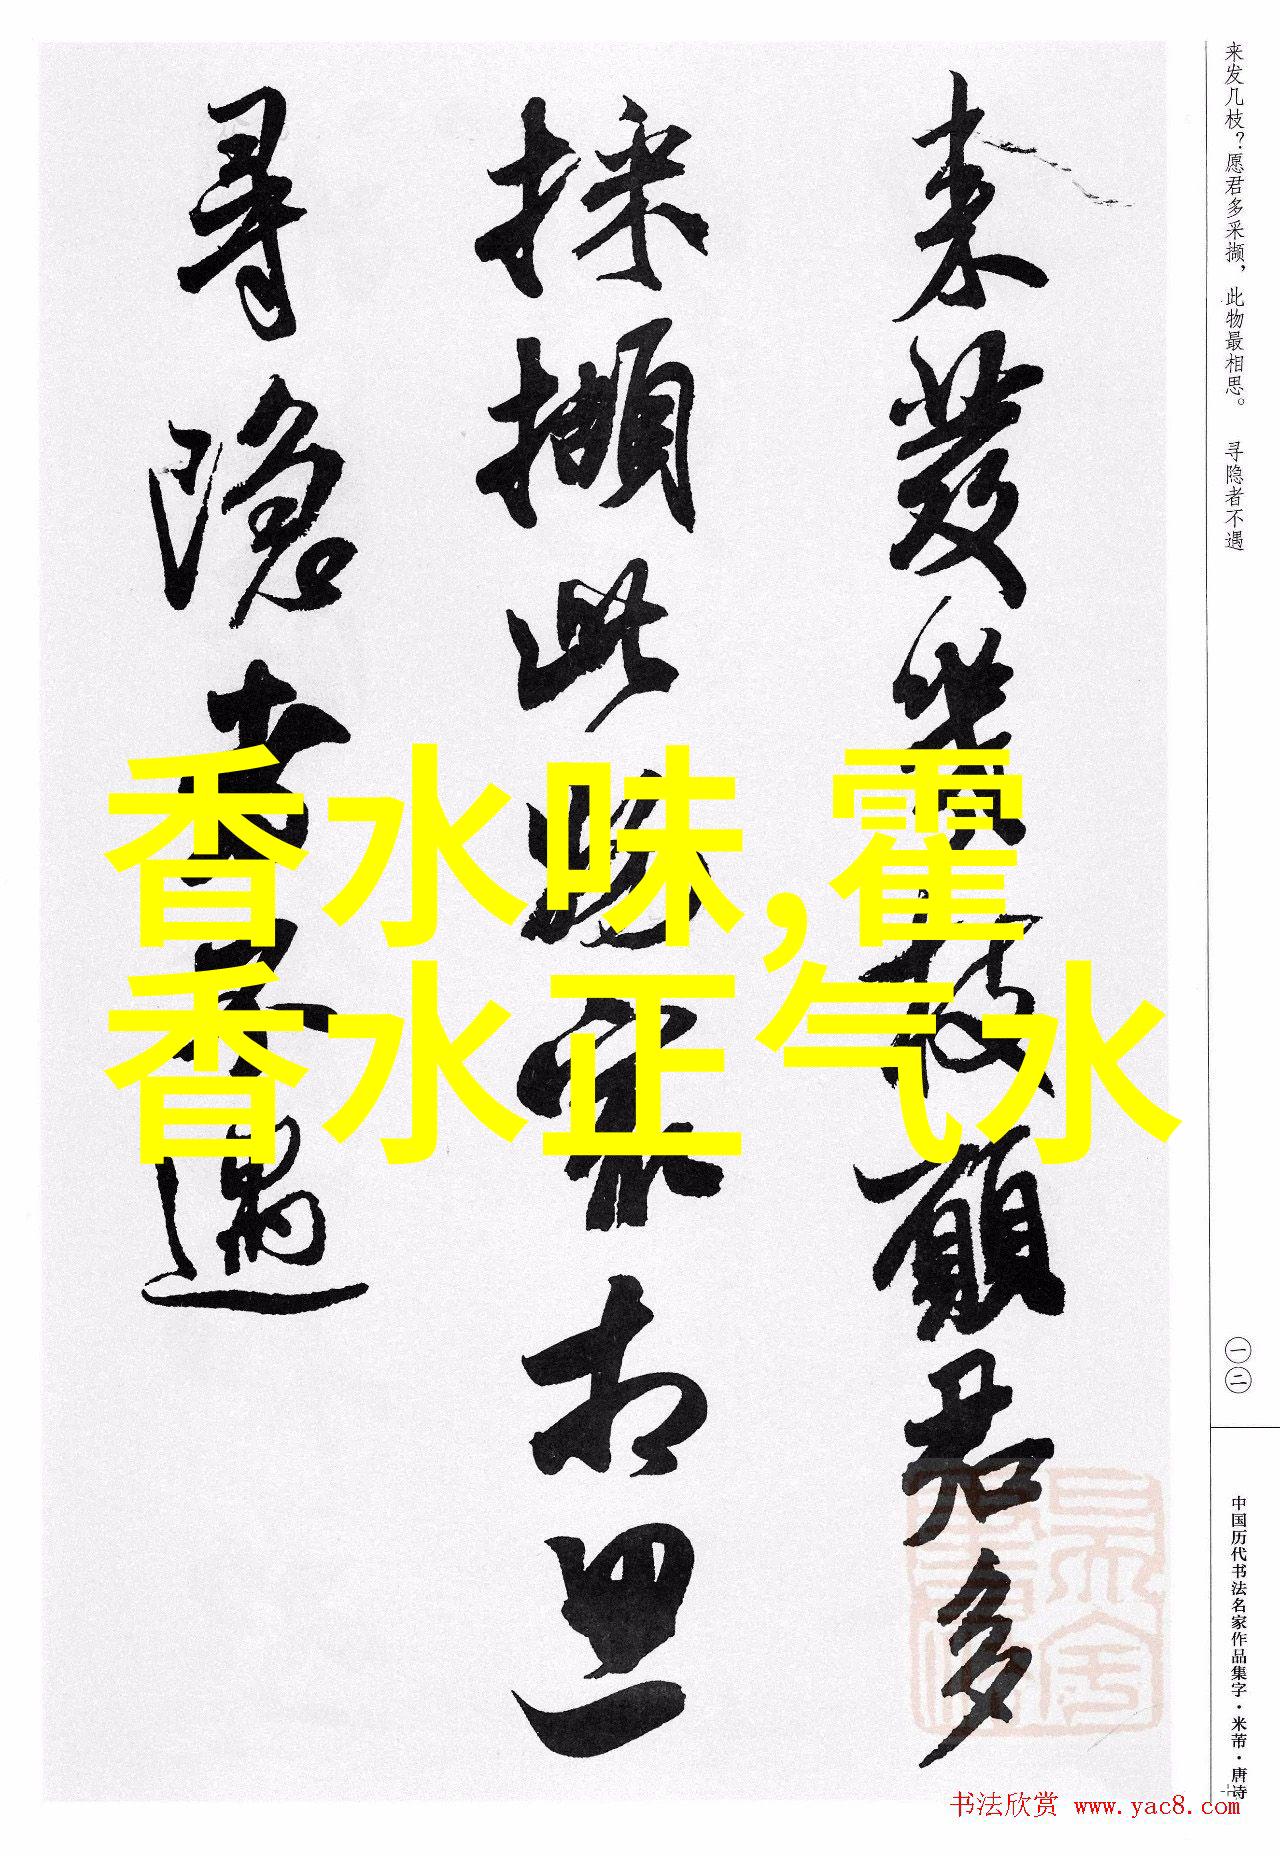 来发几枝？愿君多采撷，此物最相思。 寻隐者不遇
一二
中国历代书法名家作品集字·米芾·唐诗
来發幾枝願君多
採擷此物最相思
尋隱者不遇
香水味,霍
香水正气水
书法欣赏 www.yac8.com